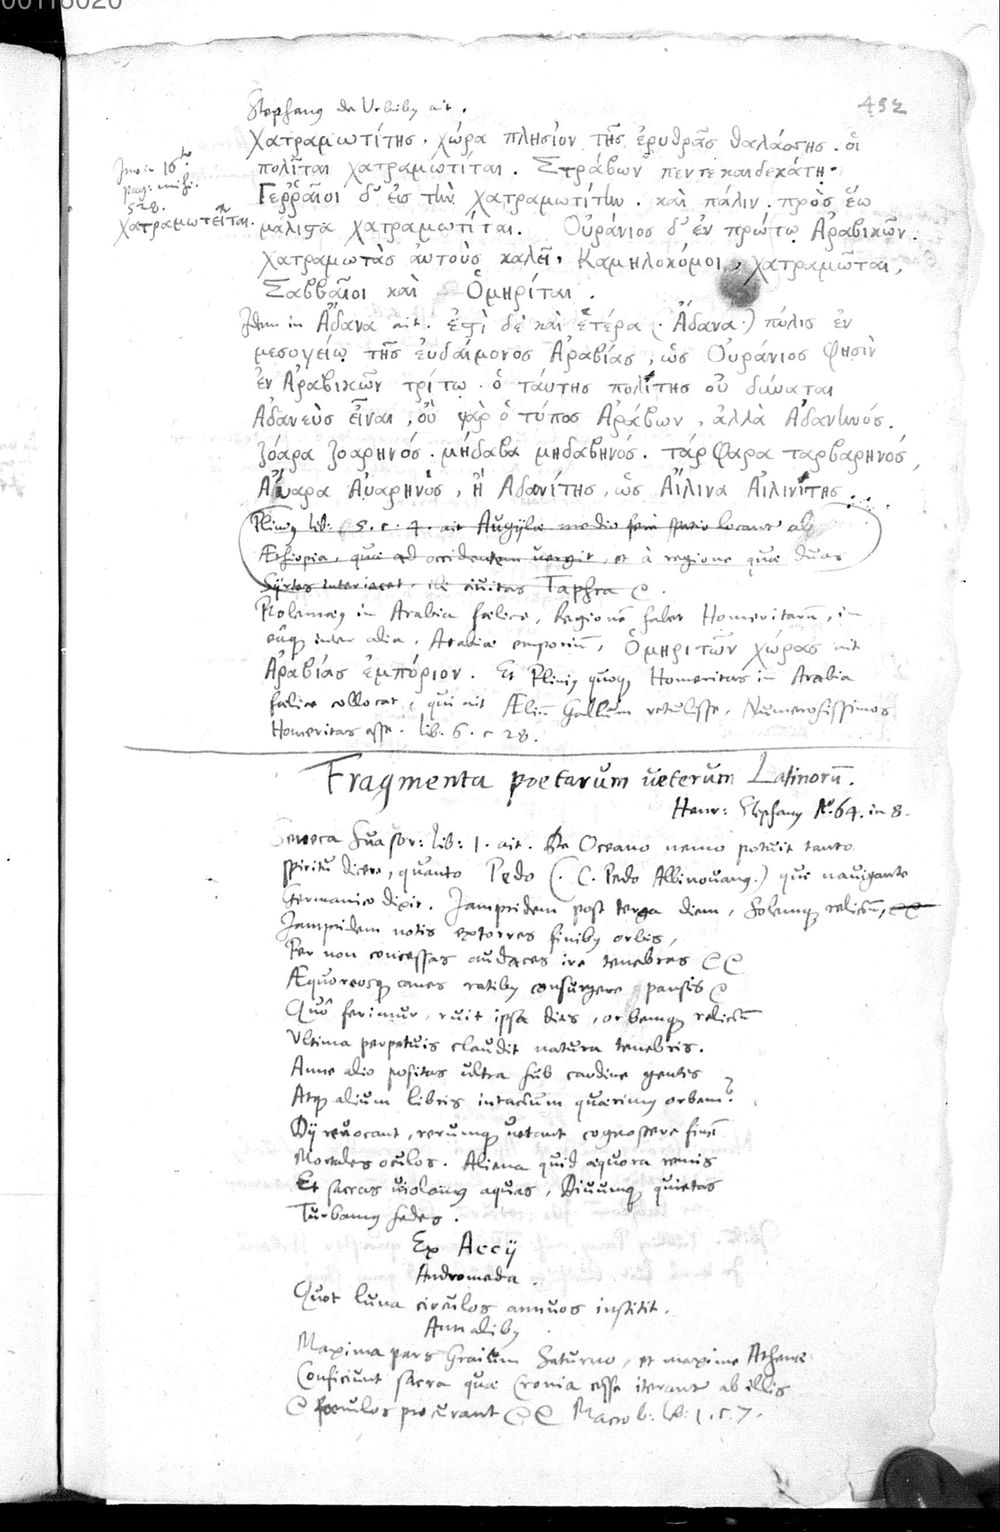 00116020
432
Stephanus de Urbibus ait.
Χατραμωτίτης, χώρα πλησίον τῆς ἐρυθρᾶς θαλάσσης. οἱ
πολῖται χατραμωτίται. Στράβων πεντεκαιδεκάτη.
Γερραῖοι δ' εἰς τὴν χατραμωτίτην. καὶ πάλιν. πρὸς ἕω
μάλιϛα χατραμωτίται. Οὐράνιος δ' ἐν πρώτῳ Ἀραβικῶν.
χατραμωτὰς αὐτοὺς καλεῖ, Καμηλοκόμοι, χατραμῶται,
Σαββαῖοι καὶ Ὁμηρίται.
Imo in 16to.
pag: mihi.
528.
χατραμωτεῖται.
Idem in Ἄδανα ait. ἐϛὶ δὲ καὶ ἑτέρα (. Ἄδανα.) πόλις ἐν
μεσογείῳ τῆς ἐυδαίμονος Ἀραβίας, ὡς Οὐράνιος φησὶν
ἐν Ἀραβικῶν τρίτῳ. ὁ ταύτης πολίτης οὐ δύναται
Ἀδανεὺς εἶναι, οὐ γὰρ ὁ τύπος Ἀράβων, ἀλλὰ Ἀδανηνός.
Ζόαρα Ζοαρηνός. μήδαβα μηδαβηνός. τάρφαρα ταρβαρηνός,
Αὔαρα Αὐαρηνὸς, ἢ Ἀδανίτης, ὡς Αἴλινα Αἰλινίτης.
Plinius lib: 5. c. 4. ait Augylæ medio ferè spatio locant ab
Æthiopia, quæ ad occidentem uergit, et à regione quæ duas
Syrtes interiacet, ibi ciuitas Taphra
Ptolemæus in Arabia fælice, Regionē habet Homeritarū, in
eaque inter alia, Arabiæ emporiū, Ὁμηριτῶν χώρας ait
Ἀραβίας ἐμπόριον. Et Plinius quoque Homeritas in Arabia
fælice collocat, qui ait Æliū Gallum retulisse, Numerosissimos
Homeritas esse. lib. 6. c 28.
Fragmenta poetarum ueterum Latinorū.
Henr: Stephanus Ao. 64. in 8.
Seneca Suasor: lib: 1. ait. De Oceano nemo potuit tanto
spiritu dicere, quanto Pedo (. C. Pedo Albinouanus.) qui nauigante
Germanico dixit. Jampridem post terga diem, Solemque relictū,
Jampridem notis extorres finibus orbis,
Per non concessas audaces ire tenebras
Æquoreosque canes ratibus consurgere pansis
Quò ferimur, ruit ipsa dies, orbemque relictū
Vltima perpetuis claudit natura tenebris.
Anne alio positas ultra sub cardine gentis
Atque alium libris intactum quærimus orbem?
Dij reuocant, rerumque uetant cognoscere finē
Mortales oculos. Aliena quid æquora remis
Et sacras uiolamus aquas, Diuumque quietas
Turbamus sedes.
Ex Accij
Andromeda.
Quot luna circulos annuos institit.
Annalibus
Maxima pars Graiûm Saturno, et maxime Athenæ
Conficiunt sacra quæ Cronia esse iterantur ab illis
famulos procurant Macrob: lib: 1. c. 7.